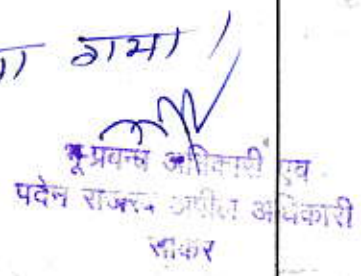 गया /
भू-प्रबन्ध अधिकारी एवं
पदेन राजस्व अपील अधिकारी
सीकर